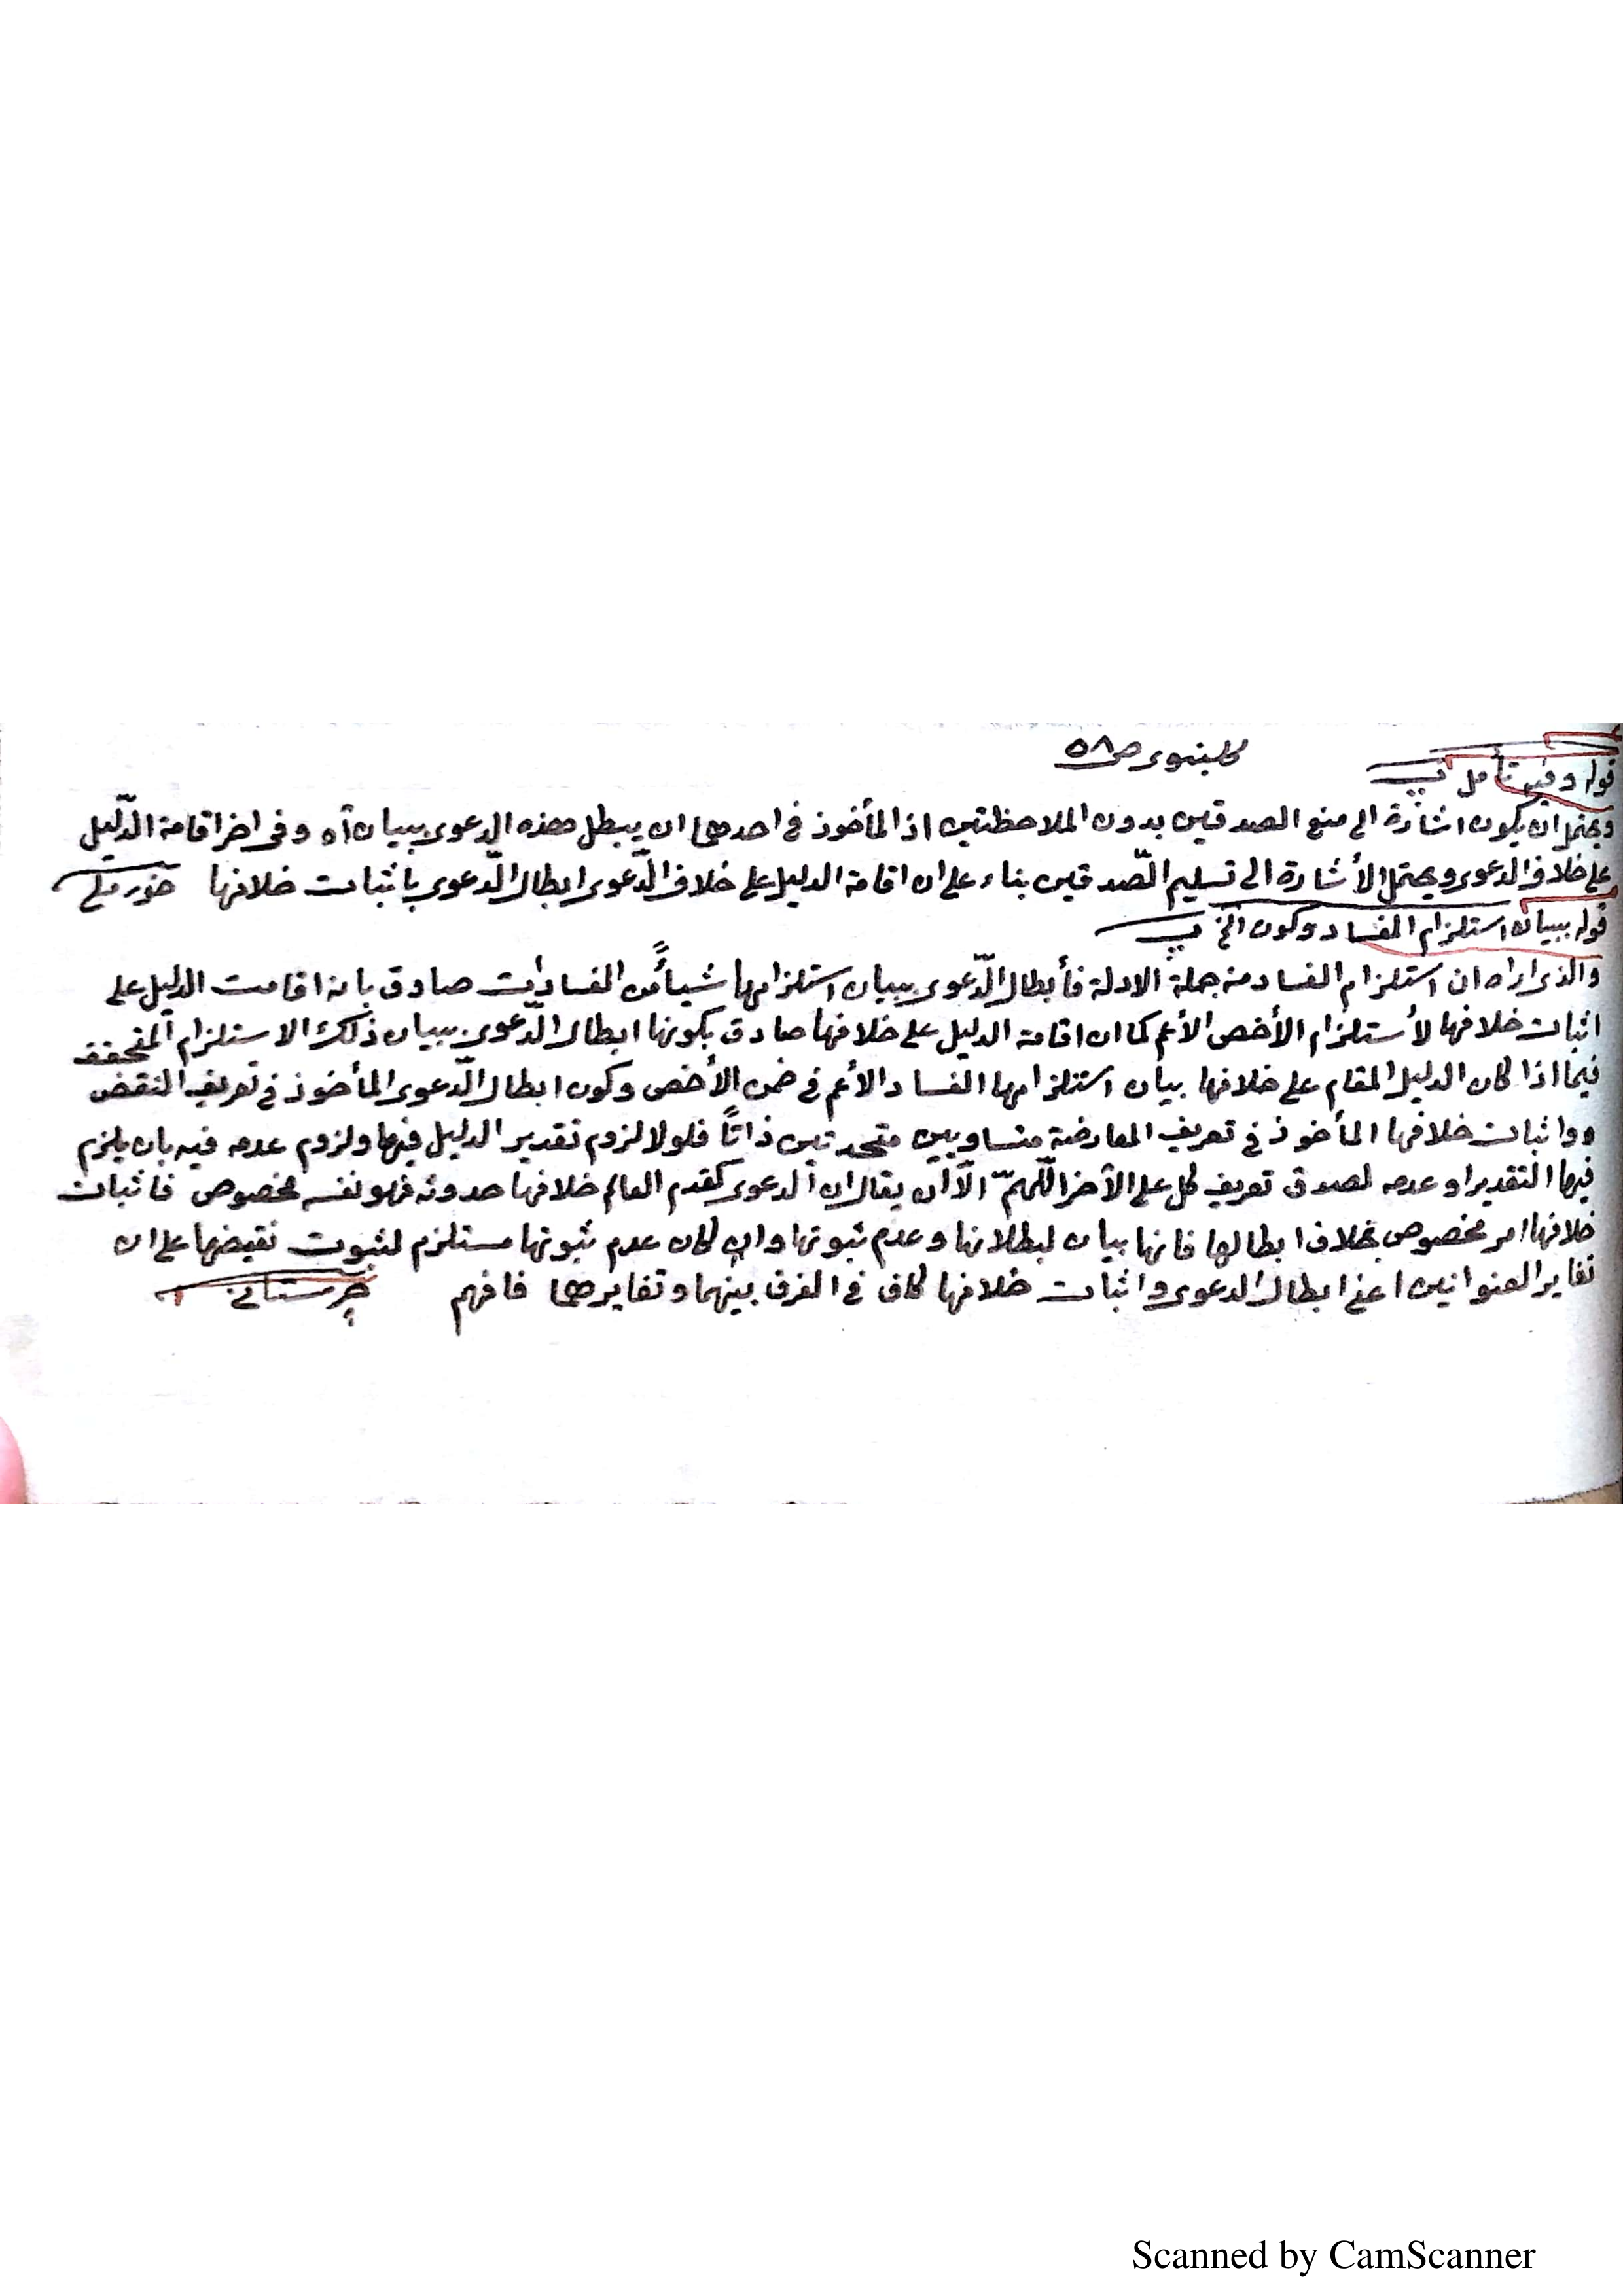 كلينبوى ص٥٨
قوله وفيه تأمل
ويحتمل ان يكون اشارة الى منع الصدقين بدون الملاحظتين اذ المأخوذ فى احدهما ان يبطل هذه الدعوى ببيان آه وفى اخر اقامة الدّليل
على خلاف الدعوى ويحتمل الأشارة الى تسليم الصّدقين بناء على ان اقامة الدليل على خلاف الدّعوى ابطال الدّعوى باثبات خلافها
قوله ببيان استلزام الفساد وكون الخ
والذى اراه ان استلزام الفساد من جملة الادلة فأبطال الدّعوى ببيان استلزامها شيأً من الفسادات صادق بانه اقامت الدليل على
اثبات خلافها لأستلزام الأخص الأعم كما ان اقامة الدليل على خلافها صادق بكونها ابطال الدّعوى ببيان ذلك الاستلزام المتحقق
فيما اذا كان الدليل المقام على خلافها بيان استلزامها الفساد الأعم فى ضمن الأخص وكون ابطال الدّعوى المأخوذ فى تعريف النقض
واثبات خلافها المأخوذ فى تعريف المعارضة متساويين متحدتين ذاتاً فلولا لزوم تقدير الدليل فيها ولزوم عدمه فيه بان يلزم
فيهما التقدير او عدمه لصدق تعريف كل على الآخر اللّهمّ الّا ان يقال ان الدعوى كقدم العالم خلافها حدوثه فهو نفسه مخصوص فاثبات
خلافها امر مخصوص بخلاف ابطالها فانها بيان لبطلانها وعدم ثبوتها وان كان عدم ثبوتها مستلزم لثبوت نقيضها على ان
تغاير العنوانين اعنى ابطال الدعوى واثبات خلافها كاف فى الفرق بينهما وتغايرهما فافهم چرستانى
Scanned by CamScanner